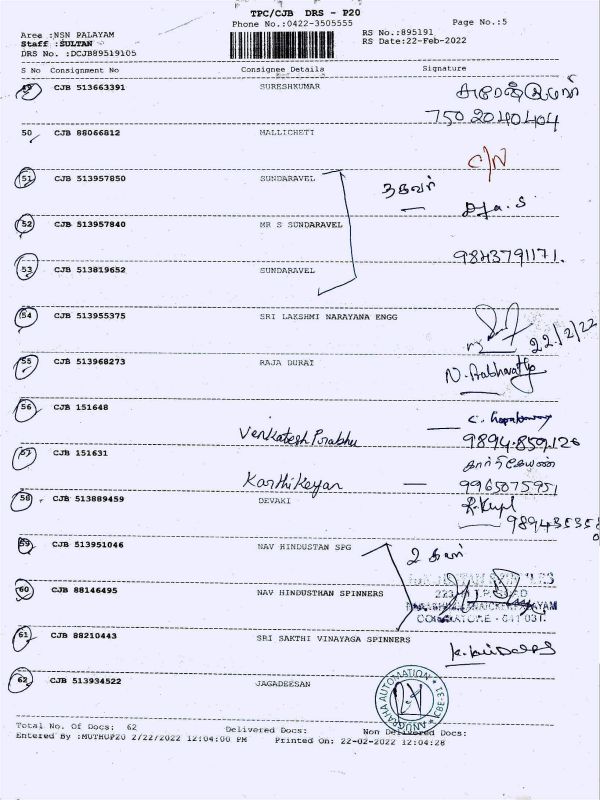 TPC/CJB DRS - P20
Phone No.:0422-3505555
Page No.:5
Area :NSN PALAYAM
Staff :SULTAN
DRS No. :DCJB89519105
RS No.:895191
RS Date:22-Feb-2022
S No Consignment No Consignee Details Signature
49 CJB 513663391 SURESHKUMAR
750 2040404
50 CJB 88066812 MALLICHETI
C/N
51 CJB 513957850 SUNDARAVEL
52 CJB 513957840 MR S SUNDARAVEL
9843791171.
53 CJB 513819652 SUNDARAVEL
54 CJB 513955375 SRI LAKSHMI NARAYANA ENGG
22/2/22
55 CJB 513968273 RAJA DURAI
56 CJB 151648
Venkatesh Prabhu 9894.859.126
57 CJB 151631
கார்த்திகேயன்
Karthikeyan — 9965075951
58 CJB 513889459 DEVAKI
59 CJB 513951046 NAV HINDUSTAN SPG
60 CJB 88146495 NAV HINDUSTHAN SPINNERS
COIMBATORE - 641 031.
61 CJB 88210443 SRI SAKTHI VINAYAGA SPINNERS
62 CJB 513934522 JAGADEESAN
ANUGRAHA AUTOMATION
Total No. Of Docs: 62 Delivered Docs: Non Delivered Docs:
Entered By :MUTHUP20 2/22/2022 12:04:00 PM Printed On: 22-02-2022 12:04:28